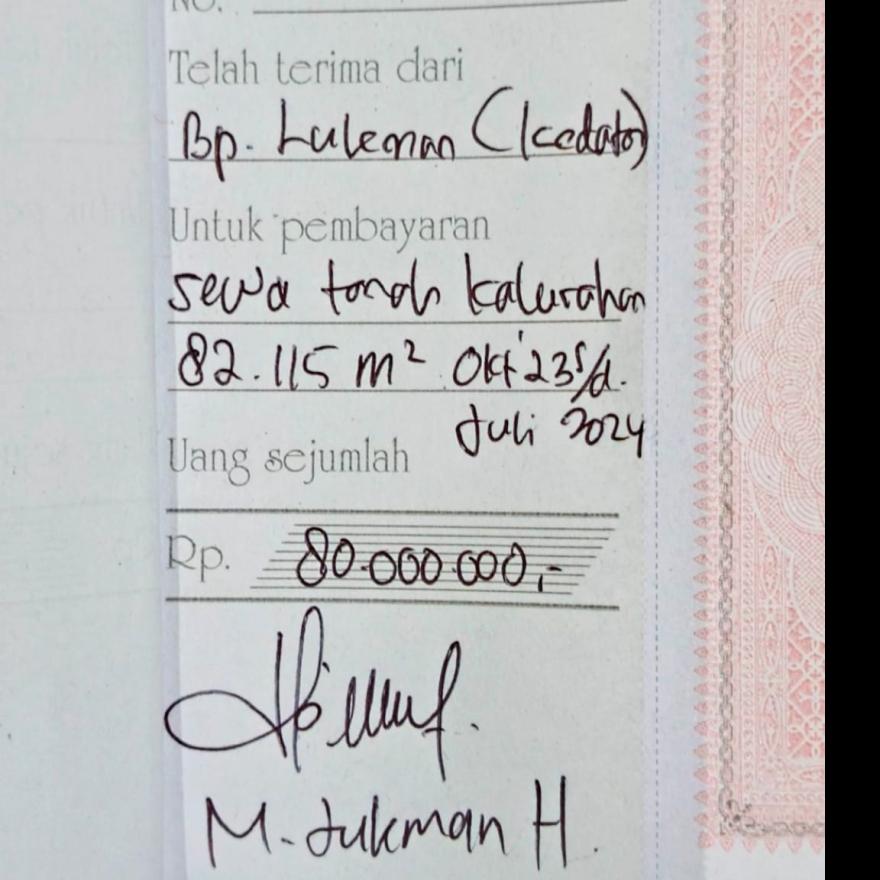 NO.
Telah terima dari
Bp. Lukman (Kedaton)
Untuk pembayaran
sewa tanah kalurahan
82.115 m² Okt'23 s/d.
Juli 2024
Uang sejumlah
Rp. 80.000.000,-
M. Lukman H.